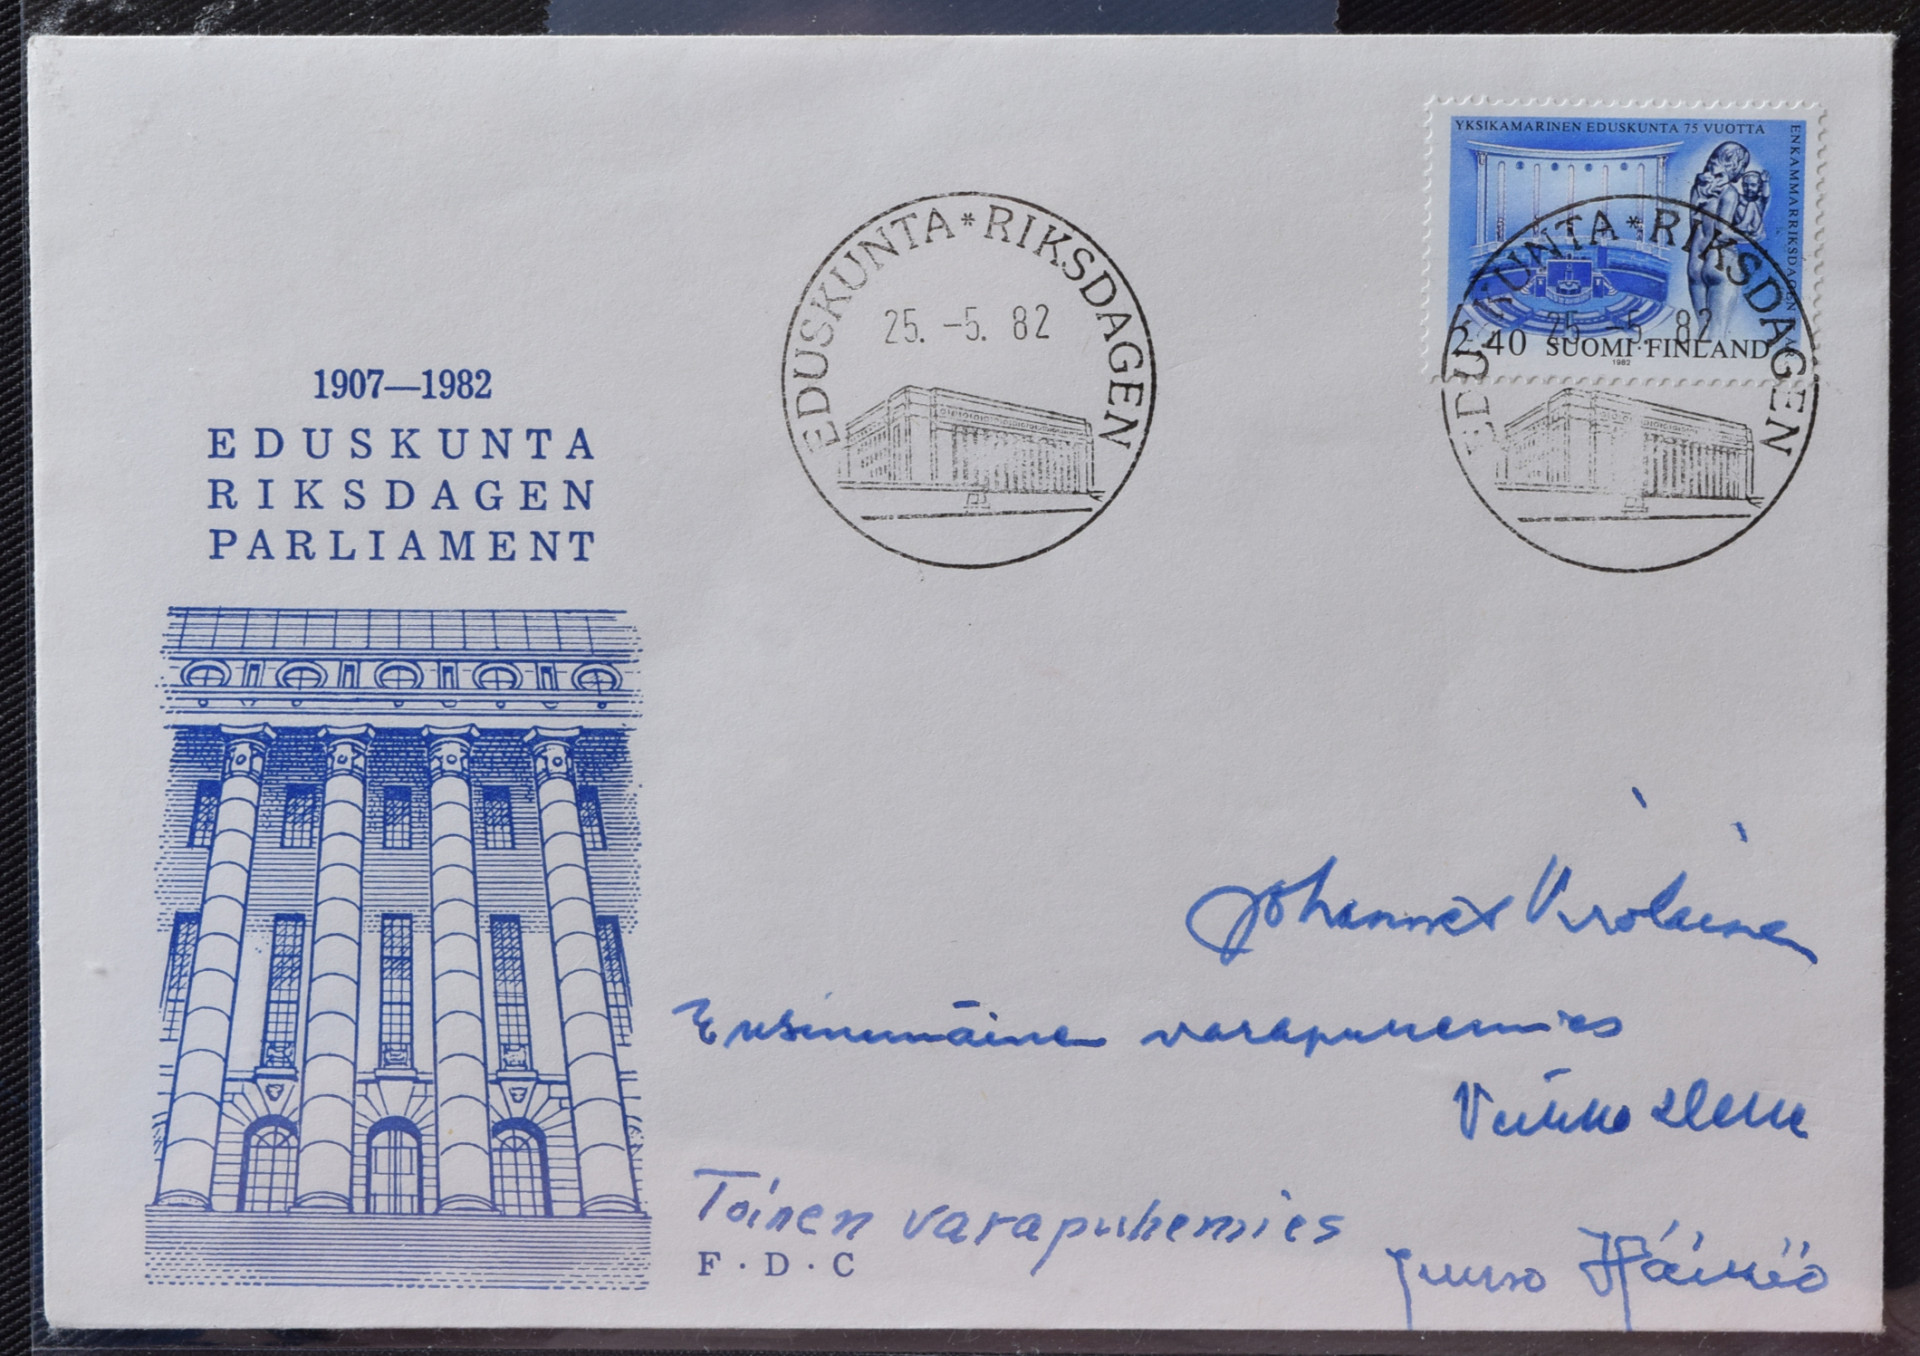 YKSIKAMARINEN EDUSKUNTA 75 VUOTTA
ENKAMMARRIKSDAGEN
2,40 SUOMI·FINLAND
1982
EDUSKUNTA * RIKSDAGEN
25. -5. 82
EDUSKUNTA * RIKSDAGEN
25. -5. 82
1907—1982
EDUSKUNTA
RIKSDAGEN
PARLIAMENT
Johannes Virolainen
Ensimmäinen varapuhemies
Veikko Helle
Toinen varapuhemies
Juuso Häikiö
F·D·C